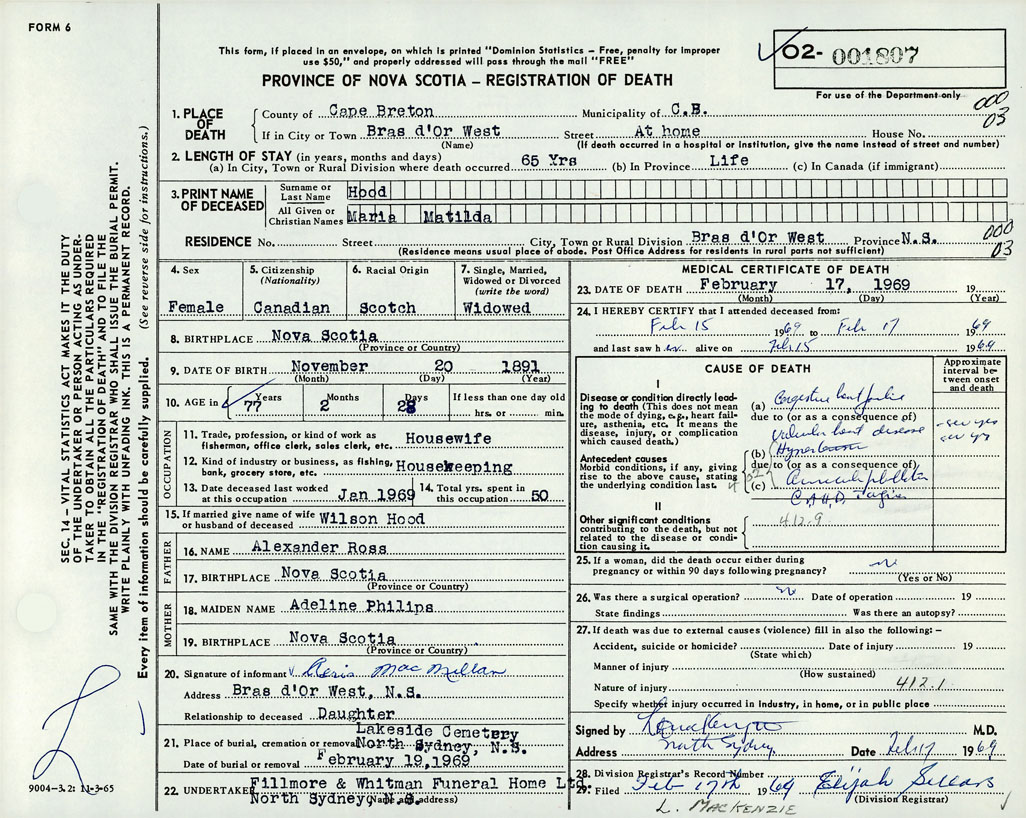 FORM 6
This form, if placed in an envelope, on which is printed "Dominion Statistics – Free, penalty for improper
use $50," and properly addressed will pass through the mail "FREE"
PROVINCE OF NOVA SCOTIA – REGISTRATION OF DEATH
O2- 001807
For use of the Department only
000
03
1. PLACE OF DEATH
County of Cape Breton Municipality of C.B.
If in City or Town Bras d'Or West Street At home House No.
(Name) (If death occurred in a hospital or Institution, give the name instead of street and number)
2. LENGTH OF STAY (in years, months and days)
(a) In City, Town or Rural Division where death occurred 65 Yrs (b) In Province Life (c) In Canada (if immigrant)
3. PRINT NAME OF DECEASED
Surname or Last Name Hood
All Given or Christian Names Maria Matilda
000
RESIDENCE No. Street City, Town or Rural Division Bras d'Or West Province N.S.
(Residence means usual place of abode. Post Office Address for residents in rural parts not sufficient) 03
4. Sex
Female
5. Citizenship
(Nationality)
Canadian
6. Racial Origin
Scotch
7. Single, Married,
Widowed or Divorced
(write the word)
Widowed
8. BIRTHPLACE Nova Scotia
(Province or Country)
9. DATE OF BIRTH November 20 1891
(Month) (Day) (Year)
10. AGE in 77 Years 2 Months 28 Days
If less than one day old
hrs. or min.
OCCUPATION
11. Trade, profession, or kind of work as
fisherman, office clerk, sales clerk, etc. Housewife
12. Kind of industry or business, as fishing,
bank, grocery store, etc. Housekeeping
13. Date deceased last worked
at this occupation Jan 1969
14. Total yrs. spent in
this occupation 50
15. If married give name of wife
or husband of deceased Wilson Hood
FATHER
16. NAME Alexander Ross
17. BIRTHPLACE Nova Scotia
(Province or Country)
MOTHER
18. MAIDEN NAME Adeline Philips
19. BIRTHPLACE Nova Scotia
(Province or Country)
20. Signature of informant Mac Millan
Address Bras d'Or West, N.S.
Relationship to deceased Daughter
21. Place of burial, cremation or removal Lakeside Cemetery
North Sydney, N.S.
Date of burial or removal February 19,1969
22. UNDERTAKER Fillmore & Whitman Funeral Home Ltd.
North Sydney, N.S.
(Name and address)
MEDICAL CERTIFICATE OF DEATH
23. DATE OF DEATH February 17, 1969 19
(Month) (Day) (Year)
24. I HEREBY CERTIFY that I attended deceased from:
Feb 15 1969 to Feb 17 1969
and last saw her alive on Feb 15 1969
CAUSE OF DEATH
Approximate
interval be-
tween onset
and death
I
Disease or condition directly lead-
ing to death (This does not mean
the mode of dying, e.g., heart fail-
ure, asthenia, etc. It means the
disease, injury, or complication
which caused death.)
(a) Congestive heart failure
due to (or as a consequence of)
valvular heart disease
(b) Hypertension
Antecedent causes
Morbid conditions, if any, giving
rise to the above cause, stating
the underlying condition last.
due to (or as a consequence of)
(c)
II
Other significant conditions
contributing to the death, but not
related to the disease or condi-
tion causing it.
412.9
25. If a woman, did the death occur either during
pregnancy or within 90 days following pregnancy? no
(Yes or No)
26. Was there a surgical operation? no Date of operation 19
State findings Was there an autopsy?
27. If death was due to external causes (violence) fill in also the following: –
Accident, suicide or homicide? Date of injury 19
(State which)
Manner of injury
(How sustained)
Nature of injury 412.1
Specify whether injury occurred in Industry, in home, or in public place
Signed by M.D.
Address North Sydney Date Feb 17 1969
28. Division Registrar's Record Number
29. Filed Feb 17th 1969 Elijah Sellars
(Division Registrar)
L. MACKENZIE
SEC. 14 – VITAL STATISTICS ACT MAKES IT THE DUTY
OF THE UNDERTAKER OR PERSON ACTING AS UNDER-
TAKER TO OBTAIN ALL THE PARTICULARS REQUIRED
IN THE "REGISTRATION OF DEATH" AND TO FILE THE
SAME WITH THE DIVISION REGISTRAR WHO SHALL ISSUE THE BURIAL PERMIT.
WRITE PLAINLY WITH UNFADING INK. THIS IS A PERMANENT RECORD.
Every item of information should be carefully supplied. (See reverse side for instructions.)
9004-3.2: 11-3-65